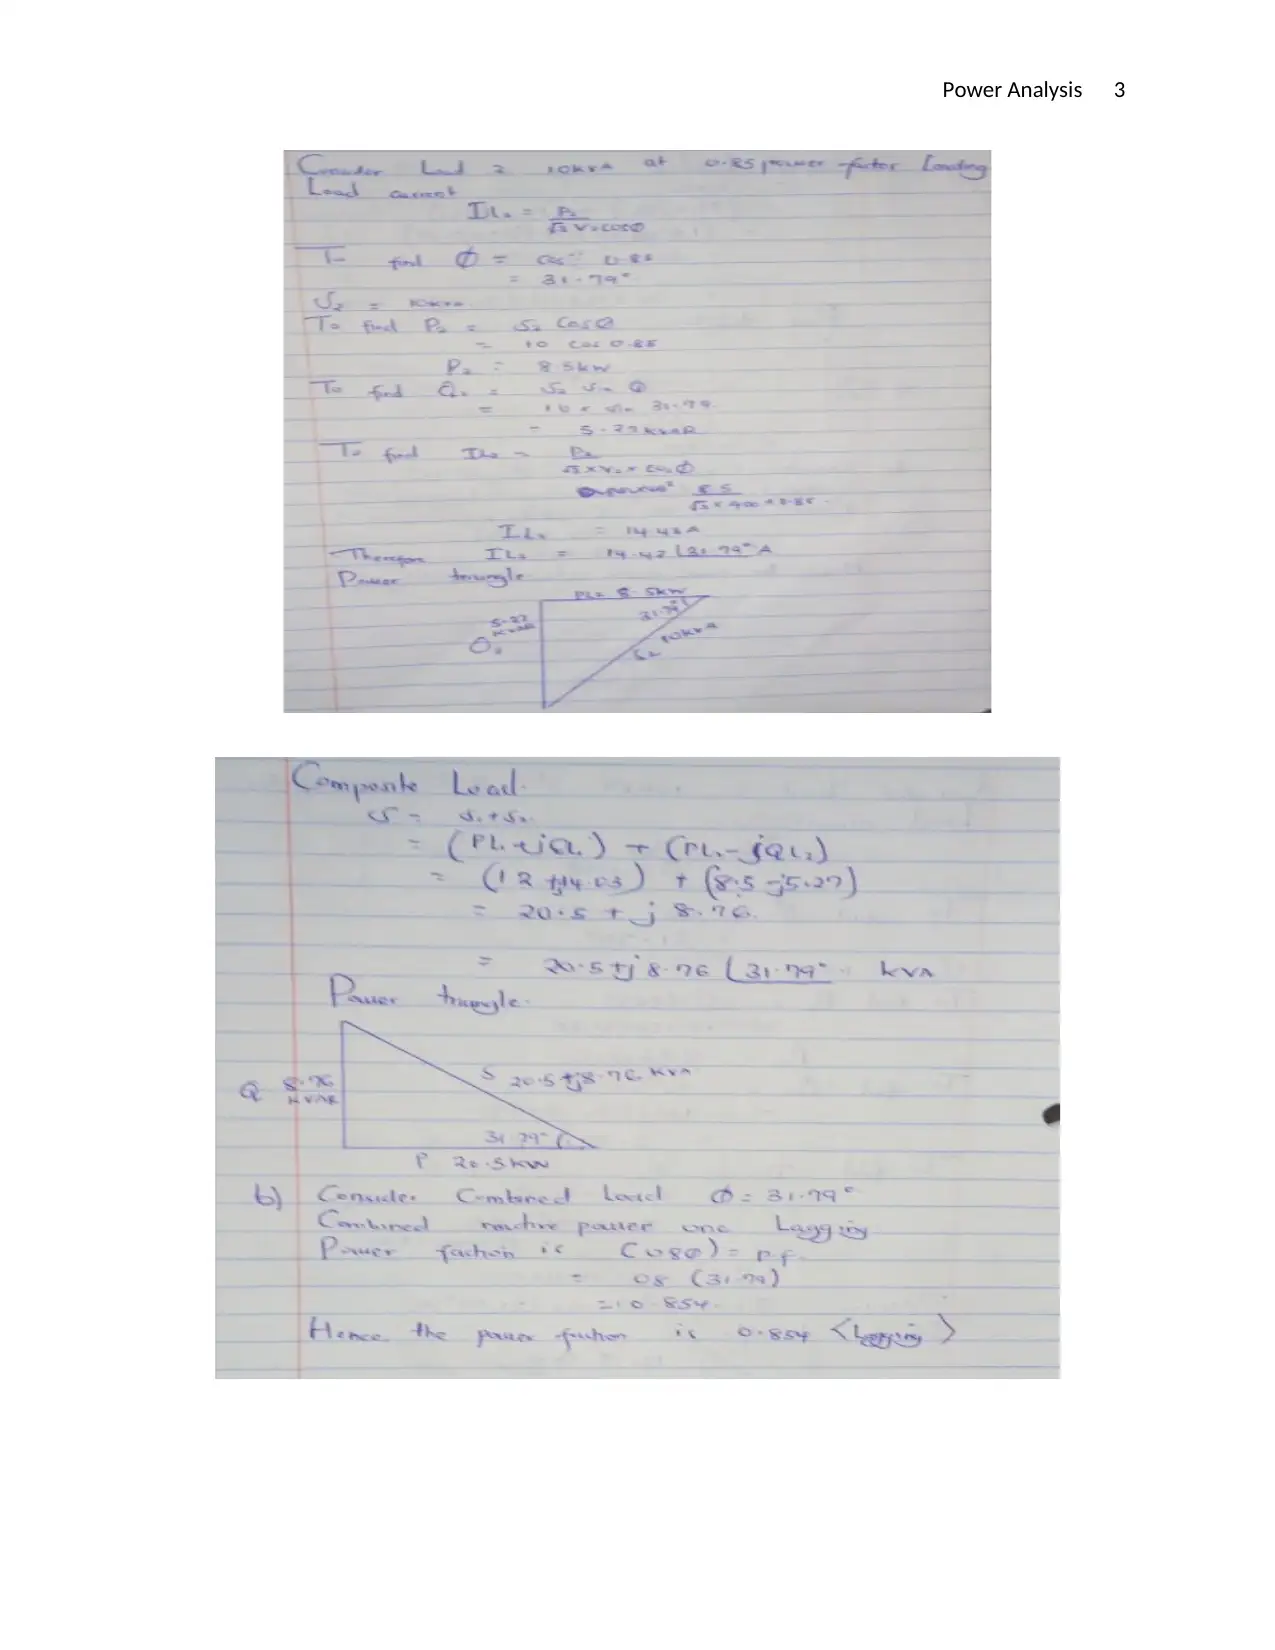 Power Analysis 3
Consider Load 2 10kVA at 0.85 power factor Leading
Load current
IL₂ = P₂
√3 V × COSØ
To find Ø = Cos⁻¹ 0.85
= 31.79°
S₂ = 10kVA
To find P₂ = S₂ CosØ
= 10 cos 0.85
P₂ = 8.5kW
To find Q₂ = S₂ Sin Ø
= 10 × sin 31.79
= 5.27KVAR
To find IL₂ = P₂
√3 × V₂ × Cos Ø
8.5
√3 × 400 × 0.85
IL₂ = 14.43A
Therefore IL₂ = 14.42 ∠31.79° A
Power triangle
PL = 8.5kW
31.79°
5.27
KVAR
Q₂
10KVA
S₂
Composite Load.
S = S₁ + S₂.
= (PL₁ + jQL₁) + (PL₂ - jQL₂)
= (12 + j14.03) + (8.5 - j5.27)
= 20.5 + j 8.76.
= 20.5 + j 8.76 ∠31.79° kVA
Power triangle.
S 20.5 + j8.76 KVA
Q 8.76
KVAR
31.79°
P 20.5KW
b) Consider Combined Load Ø = 31.79°
Combined reactive power one Lagging
Power faction is (cosø) = p.f.
= 08 (31.79)
= 0.854.
Hence the power faction is 0.854 <Lagging>